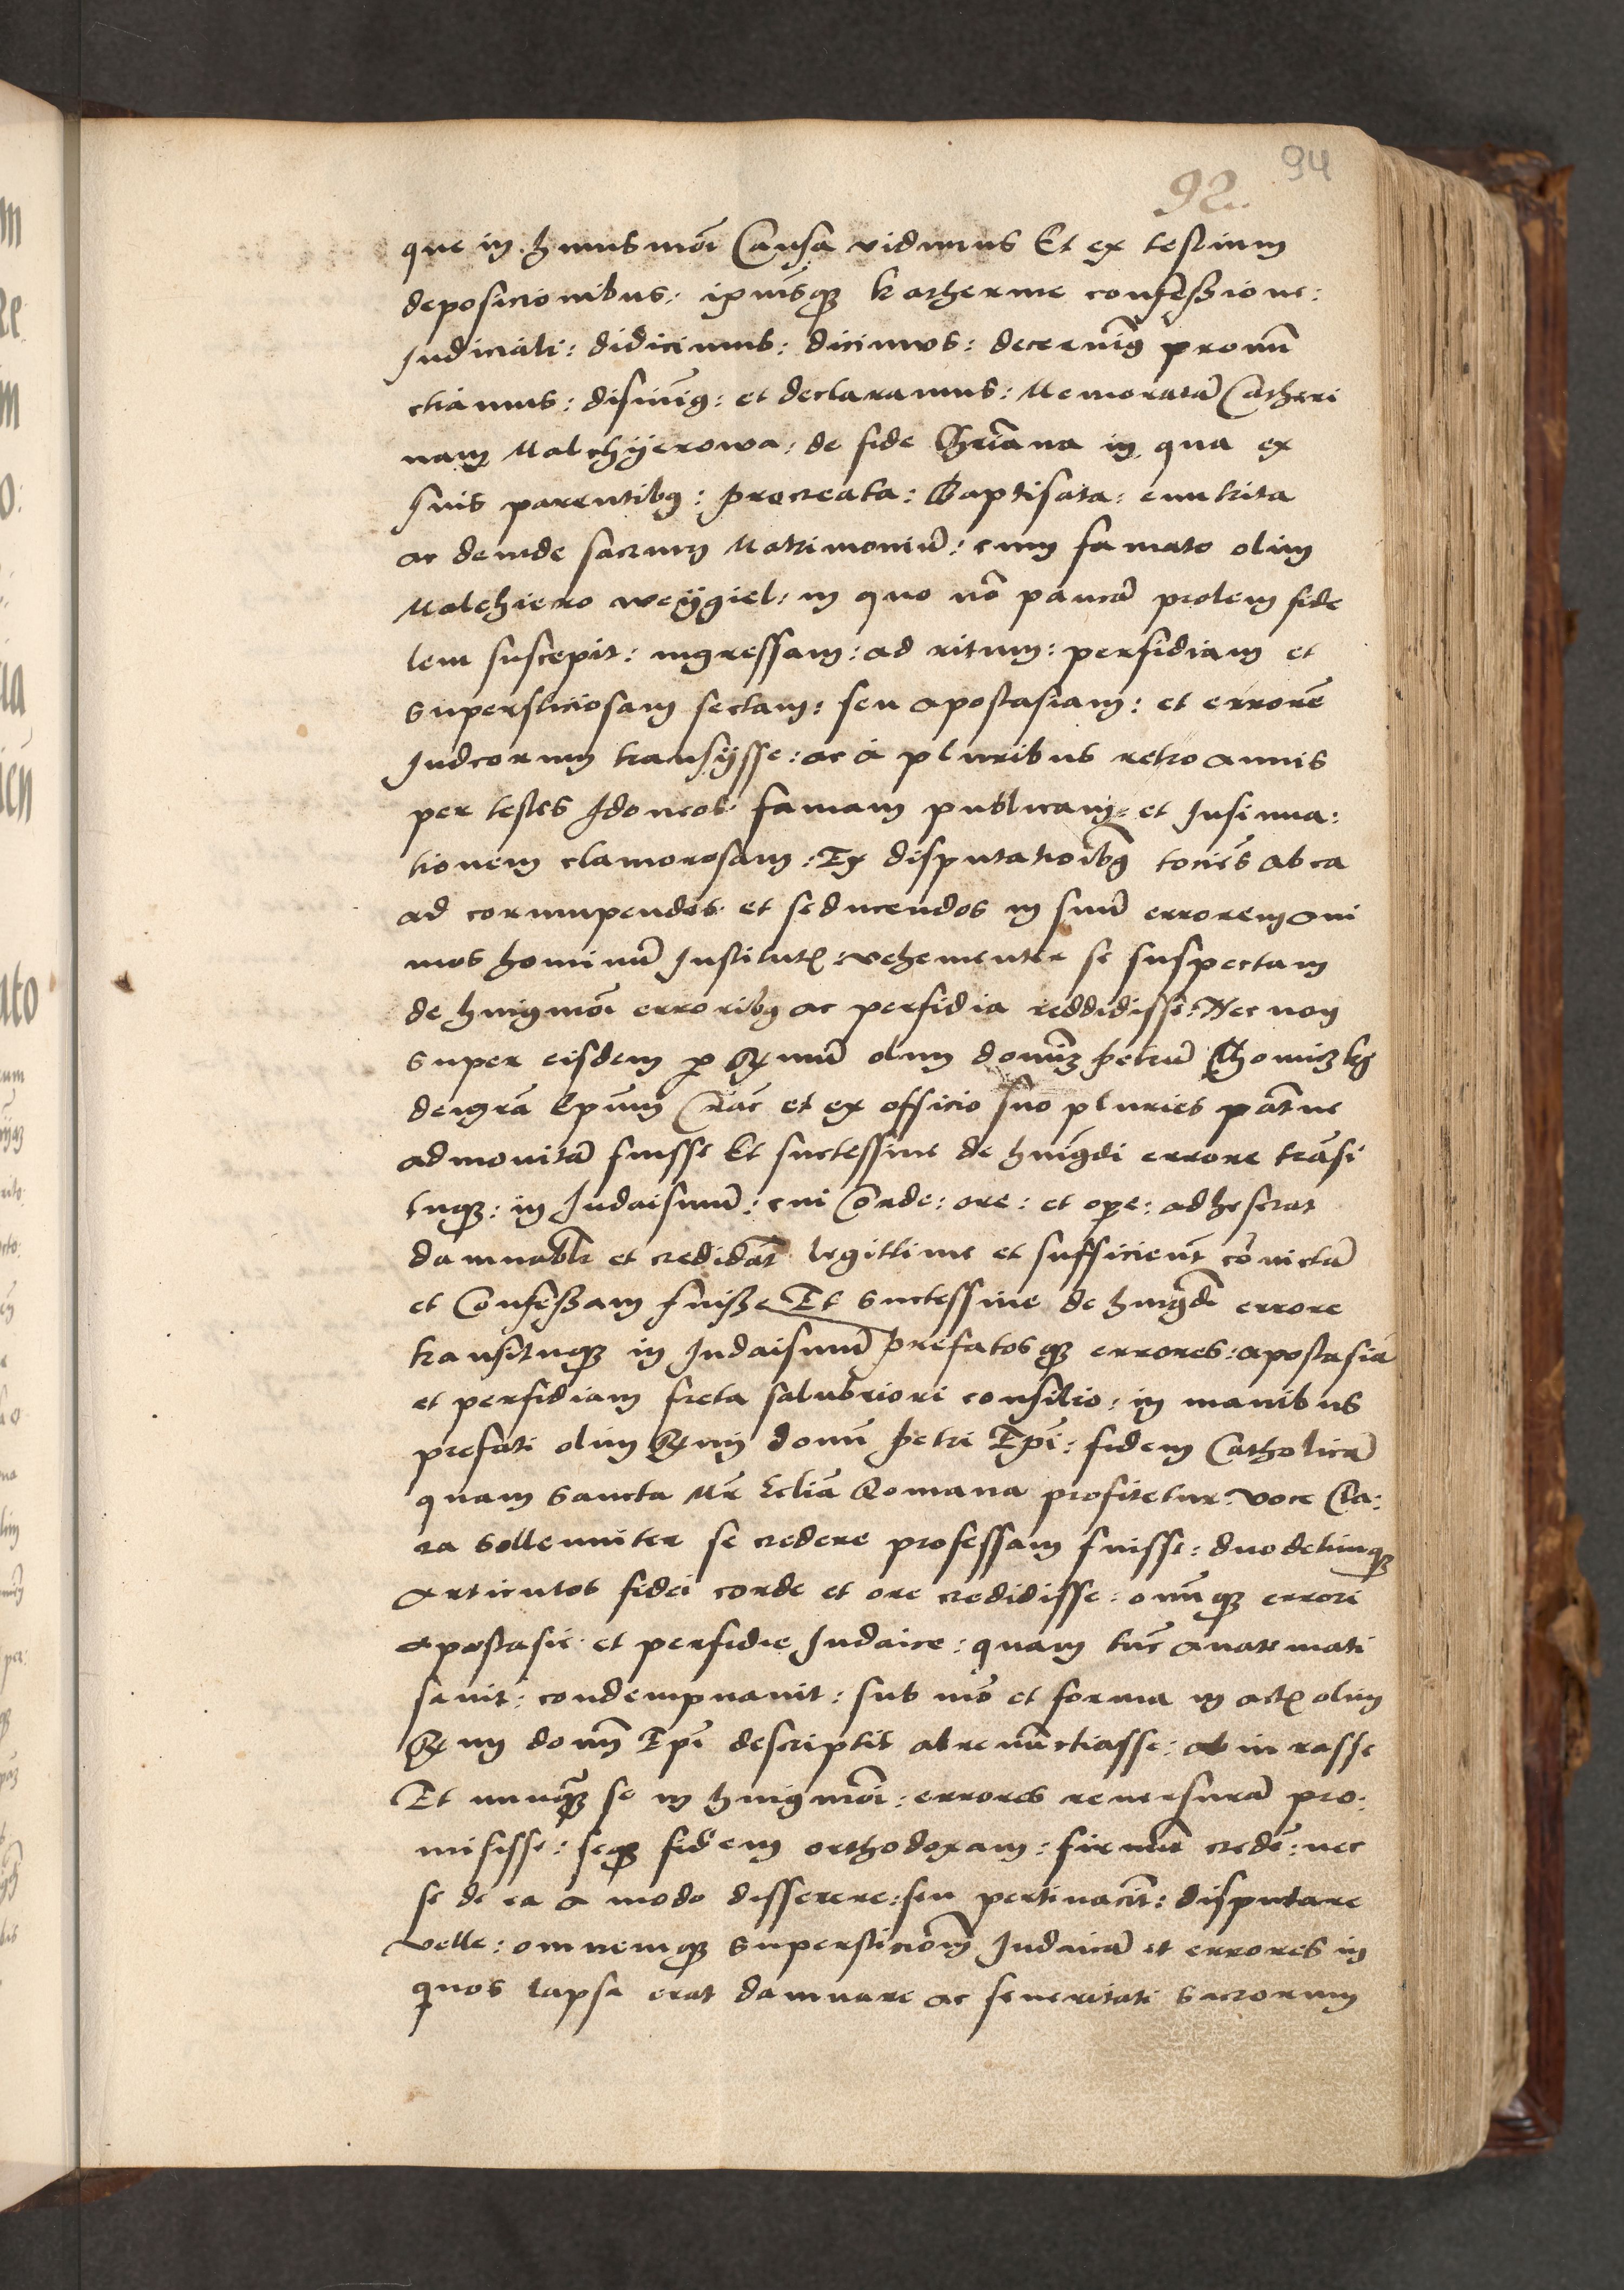 94
92
que in huiusmōi Causa vidimus Et ex testium
deposicionibus: ipsiusqꝫ katherine confessione:
Iudiciali: didicimus: dicimus: decernimꝰ pronūn
ctiamus: difinimꝰ: et declaramus: Memoratā Catheri
nam Malchyerowa: de fide Chrīana in qua ex
suis parentibꝰ: procreata: Baptisata: enutrita
ac deinde sacrum Matrimoniū: cum famato olim
Malchiero weygiel: in quo nō paucā prolem fide
lem suscepit: ingressam: ad ritum: perfidiam et
supersticiosam sectam: seu apostasiam: et errorē
Iudeorum transijsse: ac à pluribus retro annis
per testes Idoneos famam publicam: et Insinua:
tionem clamorosam: Ex disputationibꝰ tociēs ab ea
ad corrumpendos et seducendos in suū errorem ani
mos hominū Institutꝭ: vehementer se suspectam
de huiꝰmōi erroribꝰ ac perfidia reddidisse: Nec non
super eisdem ꝑ Rꝫmum olim domī Petrū Thomiczkij
dei grā Epūm Crac̄ et ex officio suo pluries pāterne
admonitā fuisse Et successiue de huiꝰdi errore trāsi
tuqꝫ: in Iudaismū: cui Corde: ore: et oꝑe: adheserat
damnabl̄r et credidāt legittime et sufficienī conuictā
et Confessam fuisse Et successiue de huiꝰdi errore
transituqꝫ in Iudaismū prefatosqꝫ errores: apostasiā
et perfidiam freta salubriori consilio: in manibus
prefati olim Rꝫmi domī Petri Epī: fidem Catholicā
quam Sancta Mr̄ Ecl̄ia Romana profitetur: voce Cla:
ra Sollemniter se credere professam fuisse: duodecimqꝫ
Articulos fidei corde et ore credidisse: omīqꝫ errori
apostasie et perfidie Iudaice: quam tūc anatemati
sauit: condempnauit: sub mō et forma in actꝭ olim
Rꝫmi domī Epī descriptis abrenūnctiasse: abiurasse
Et nunqꝫ se in huiꝰmōi: errores reuersurā pro:
misisse: seqꝫ fidem orthodoxam: firmit̄ credē: nec
se de ea a modo disserere: seu pertinacit̄: disputare
velle: omnemqꝫ supersticionem Iudaicā et errores in
quos lapsa erat damnare ac seueritati sacrorum